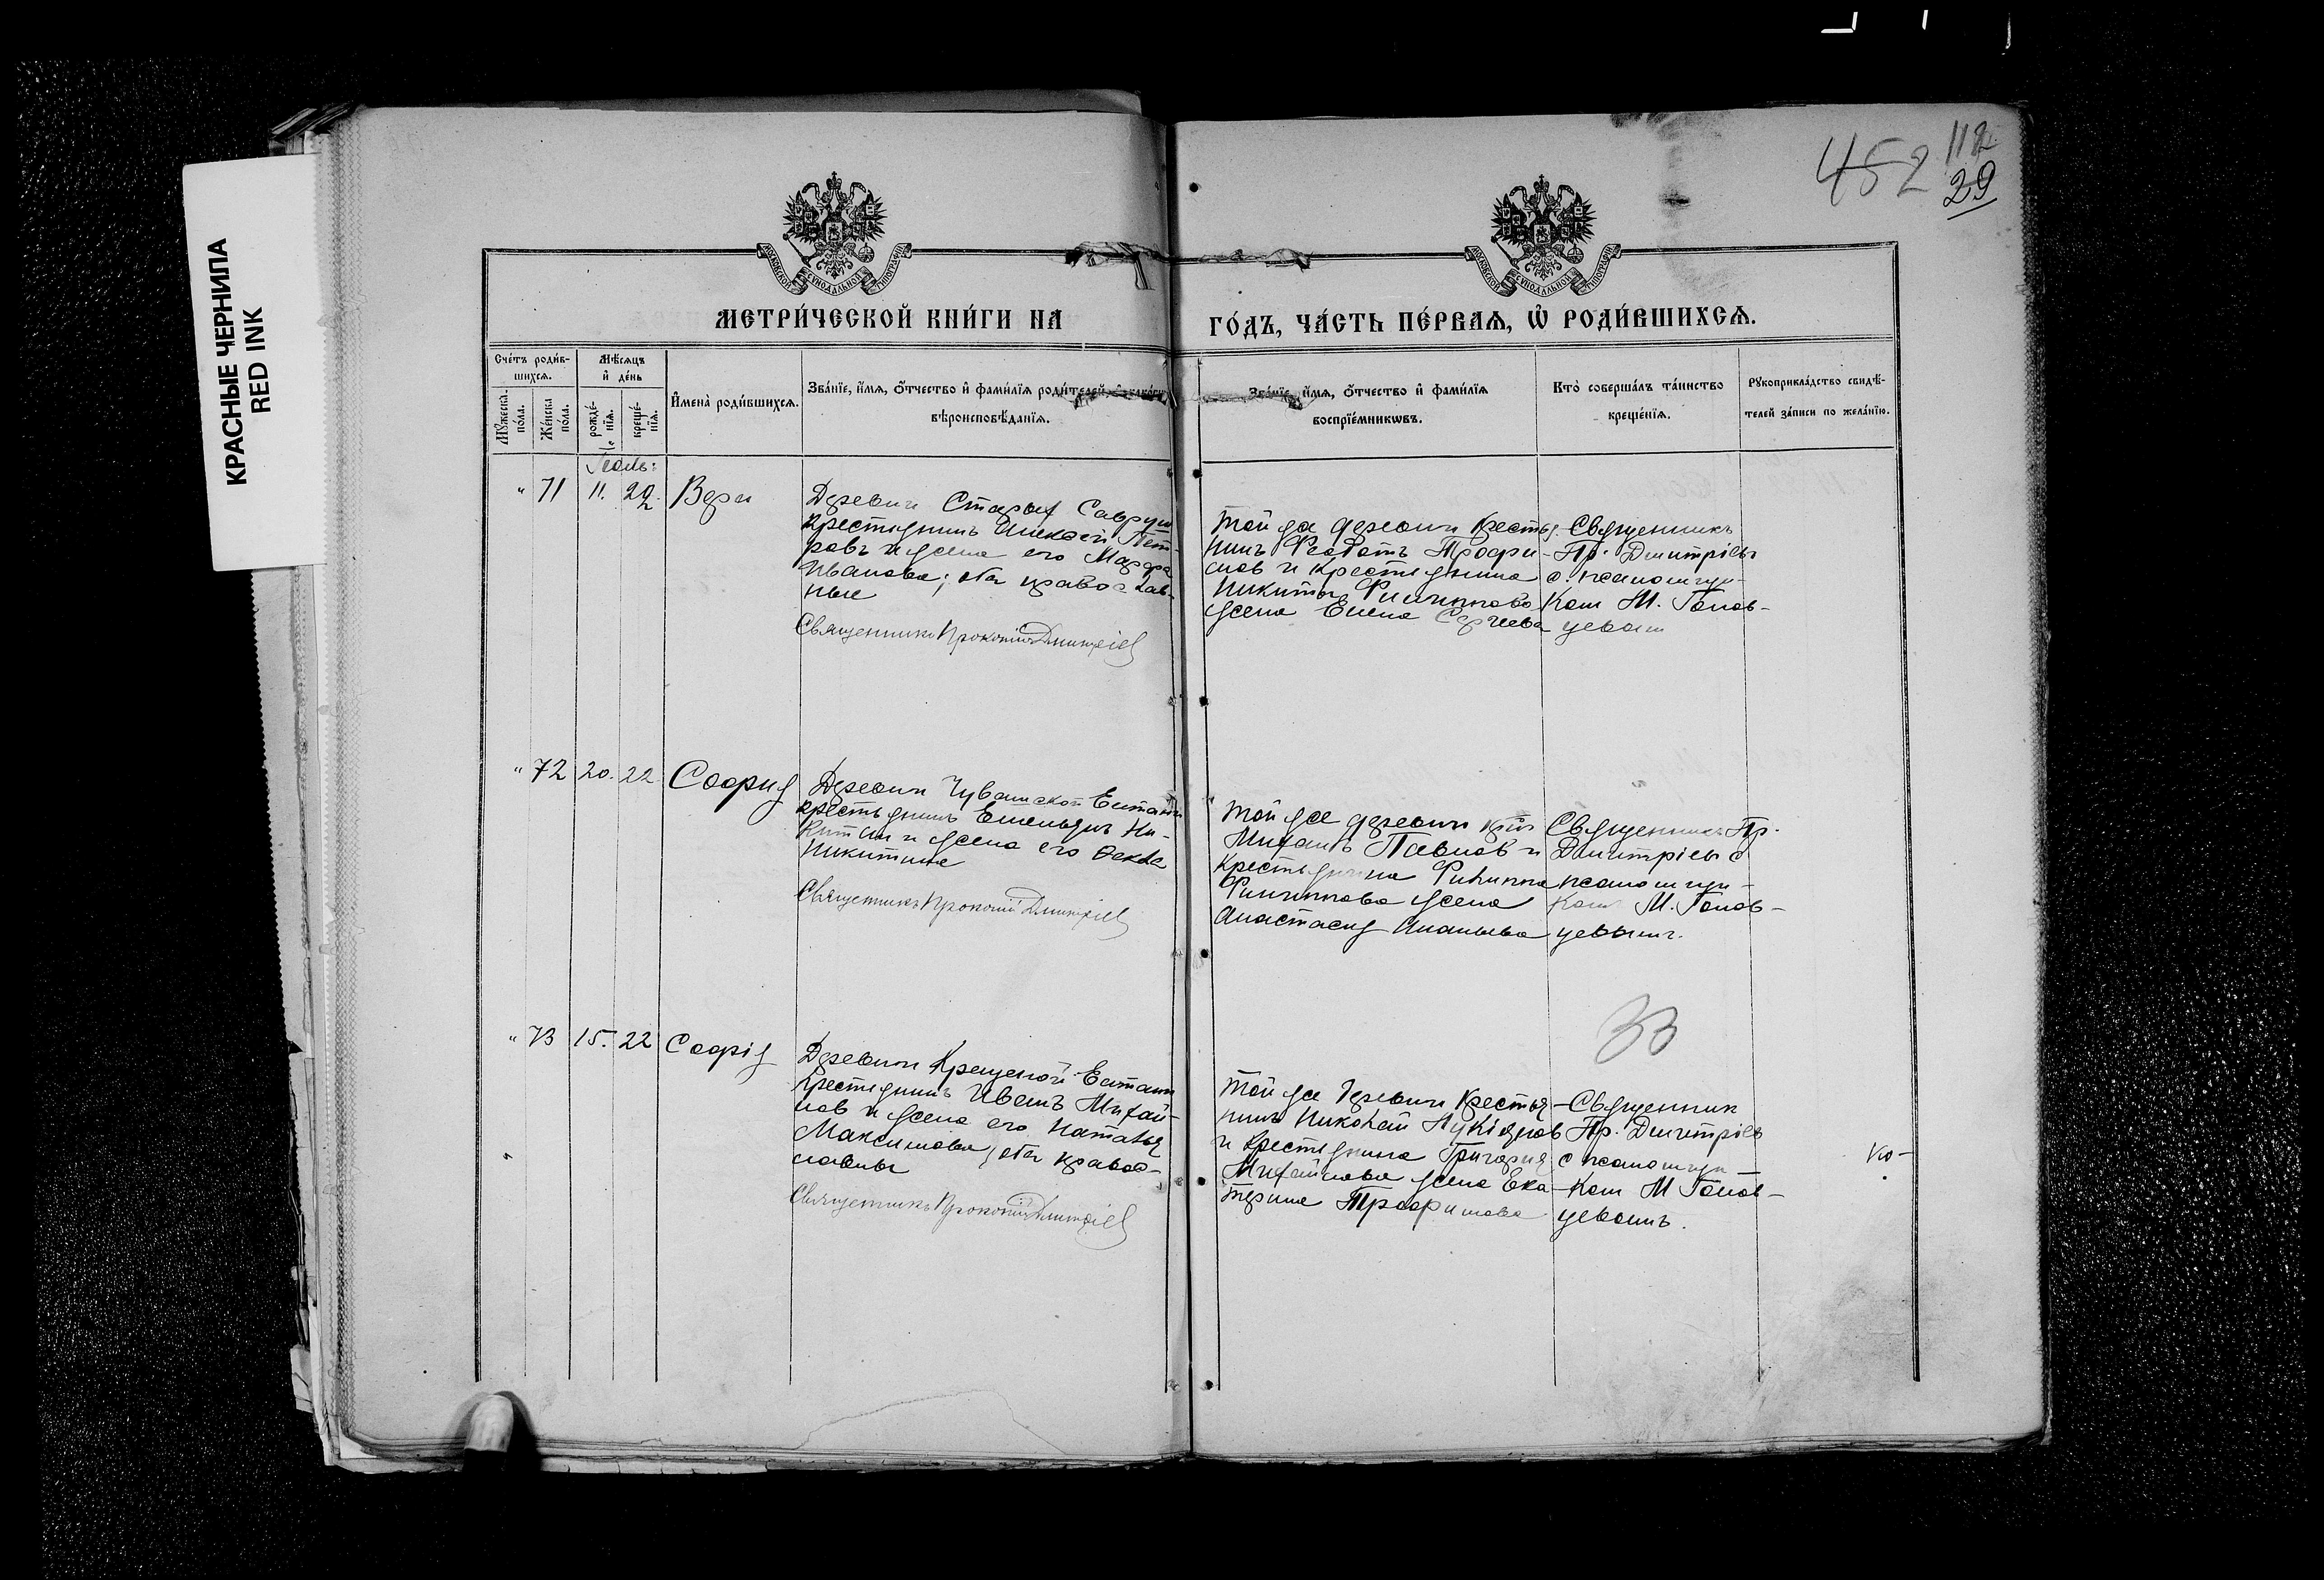 КРАСНЫЕ ЧЕРНИЛА
RED INK
452
112
29
МОСКОВСКОЙ СѴНОДАЛЬНОЙ ТИПОГРАФІИ
МОСКОВСКОЙ СѴНОДАЛЬНОЙ ТИПОГРАФІИ
МЕТРИ́ЧЕСКОЙ КНИ́ГИ НА
ГО́ДЪ, ЧА́СТЬ ПЕ́РВАѦ, Ѡ҆ РОДИ́ВШИХСѦ.
Сче́тъ роди́в-
шихсѧ.
Мꙋ́жеска по́ла.
Же́нска по́ла.
Мѣ́сѧцъ
и҆ де́нь
рожде́-
нїѧ.
креще́-
нїѧ.
И҆мена̀ роди́вшихсѧ.
Зва́нїе, и҆́мѧ, ѻ҆́тчество и҆ фами́лїѧ роди́телей,
вѣроисповѣ́данїѧ.
Зва́нїе, и҆́мѧ, ѻ҆́тчество и҆ фами́лїѧ
воспрїе́мникѡвъ.
Кто̀ соверша́лъ та́инство
креще́нїѧ.
Рꙋкоприкла́дство свидѣ́-
телей за́писи по жела́нїю.
" 71
11.
Вѣры
Деревни Старых Савруш
крестьянинъ Алексѣй Пет-
ровъ и жена его Марфа
Иванова; оба православ-
ные
Священникъ Прокопій Дмитріев
Той же деревни крестья-
нинъ Феодотъ Трофи-
мов и крестьянина
Никиты Филиппова
жена Елена Сергеева
Священникъ
Пр. Дмитріевъ
с. псаломщи-
ком М. Голов-
цевым
" 72
20.
22
София
Деревни Чувашской Елтани
крестьянинъ Емельянъ Ни-
китин и жена его Ѳекла
Никитина
Священникъ Прокопій Дмитріев
Той же деревни
Михаилъ Павлов и
крестьянина Филиппа
Филиппова жена
Анастасия Ананьева
Священникъ Пр.
Дмитріевъ с
псаломщи-
ком М. Голов-
цевымъ.
33
" 73
15.
22
Софія
Деревни Крещеной Елтани
крестьянинъ Иванъ Михай-
лов и жена его Наталья
Максимова; оба правос-
лавны
Священникъ Прокопій Дмитріев
Той же деревни крестья-
нинъ Николай Лукіянов
и крестьянина Григория
Михайлова жена Ека-
терина Трофимова
Священник
Пр. Дмитріев
с псаломщи-
ком М Голов-
цевымъ.
Ко-